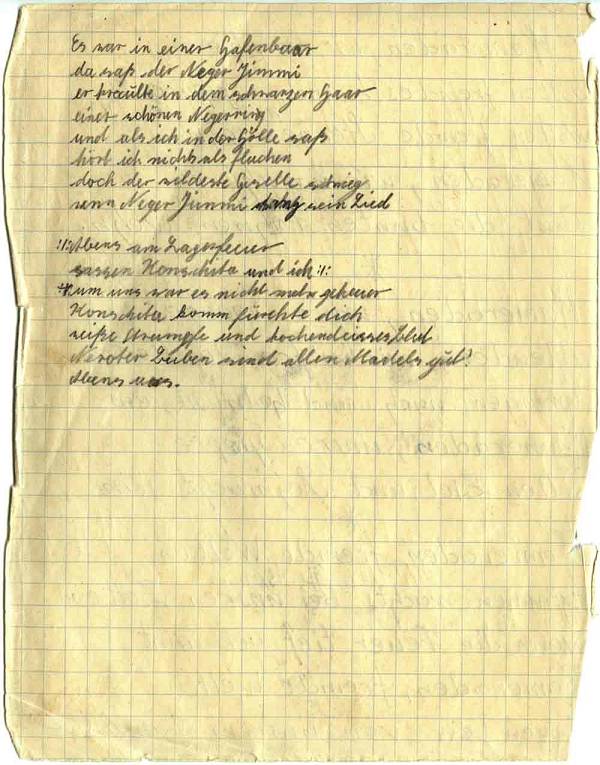 Es war in einer Hafenbaar
da saß der Neger Jimmi
er kraulte in dem schwarzen Haar
einer schönen Negerring
und als ich in der Hölle saß
hört ich nichts als fluchen
doch der wildeste Geselle schwieg
wenn Neger Jimmi sang sein Lied
:/: Abens am Lagerfeuer
sassen Honschita und ich :/:
um uns war es nicht mehr geheuer
Honschita komm fürchte dich
weiße Strümpfe und kochendeisses Blut
Neroter Buben send allen Madels gut!
Abens usw.